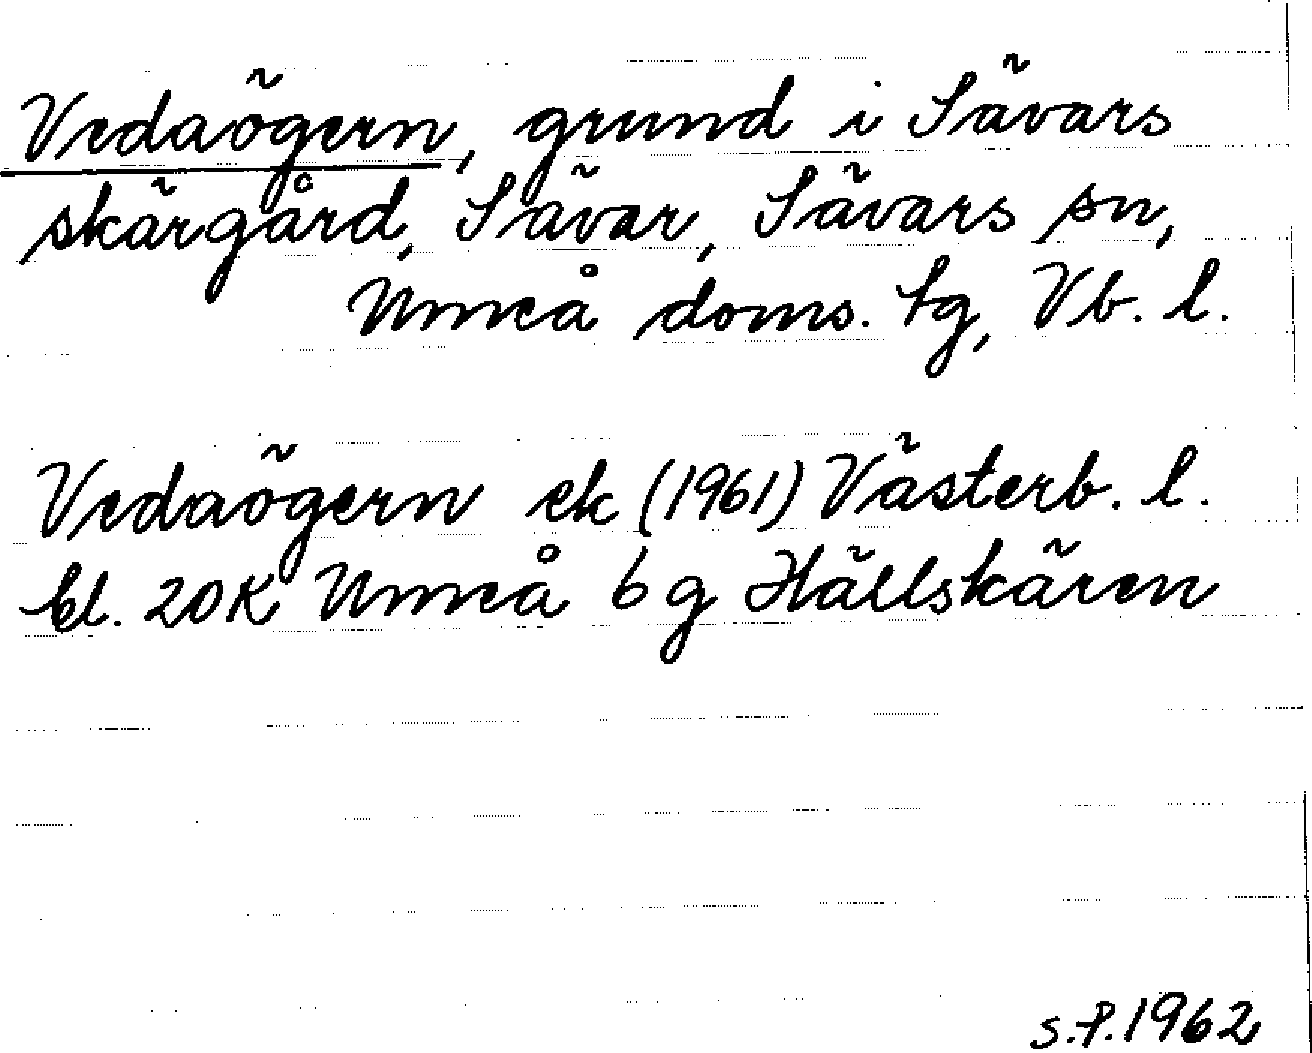 Vedaögern, grund i Sävars
skärgård, Sävar, Sävars sn,
Umeå doms. tg, Vb. l.
Vedaögern ek (1961) Västerb. l.
bl. 20K Umeå 6 g Hällskären
S.P. 1962